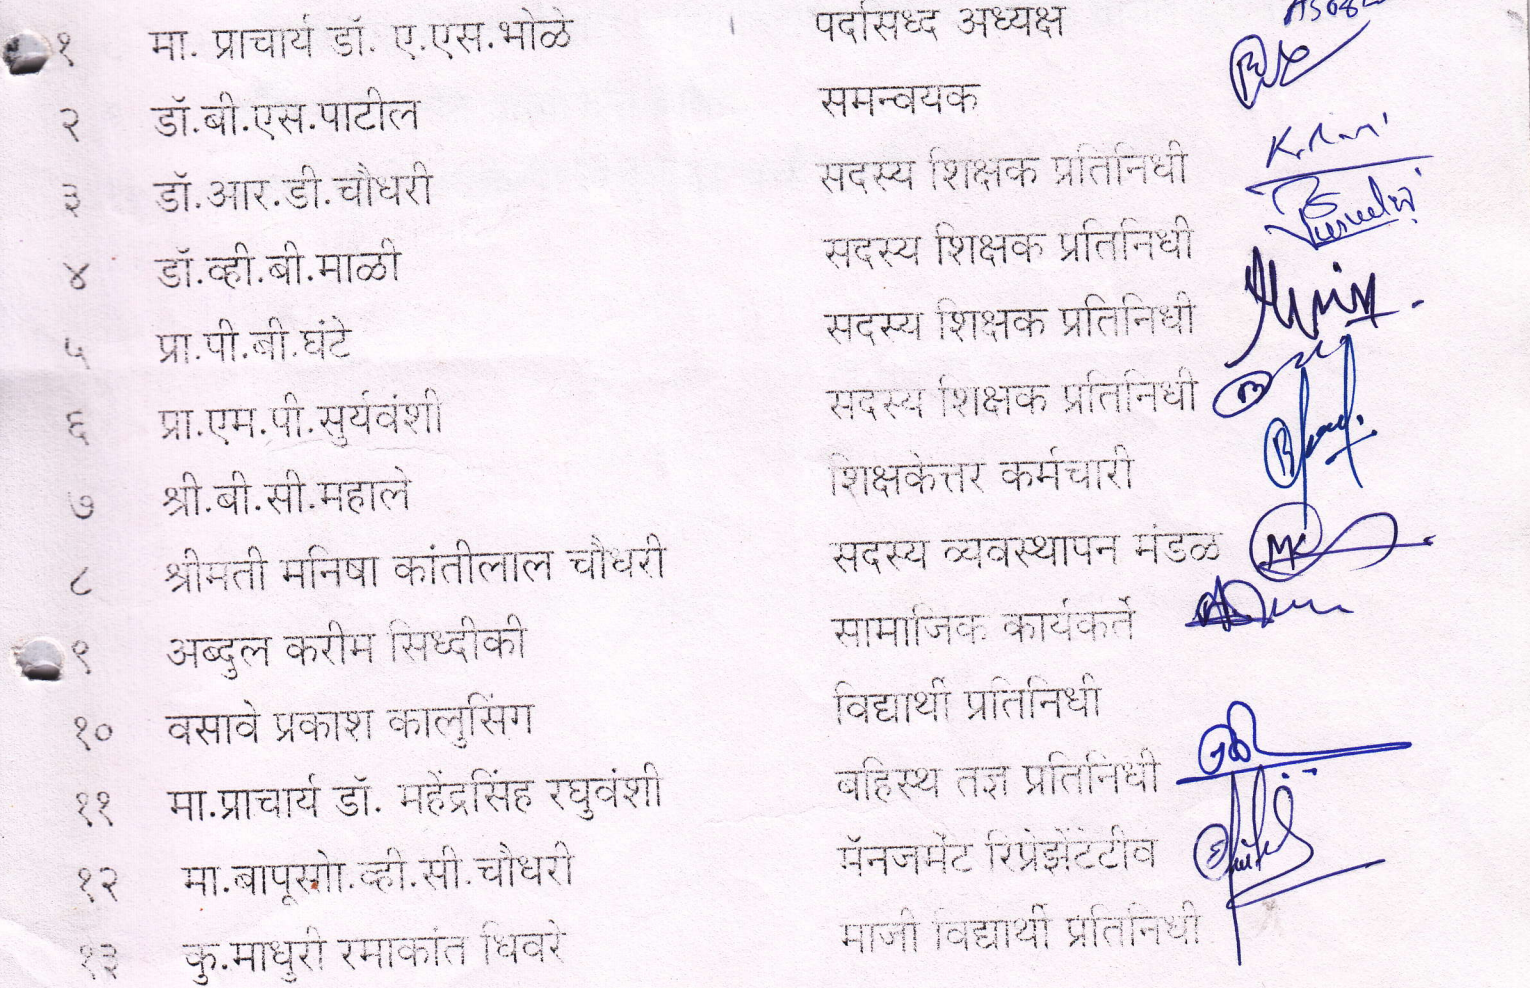 १ मा. प्राचार्य डॉ. ए.एस.भोळे पदसिध्द अध्यक्ष
२ डॉ.बी.एस.पाटील समन्वयक
३ डॉ.आर.डी.चौधरी सदस्य शिक्षक प्रतिनिधी
४ डॉ.व्ही.बी.माळी सदस्य शिक्षक प्रतिनिधी
५ प्रा.पी.बी.घंटे सदस्य शिक्षक प्रतिनिधी
६ प्रा.एम.पी.सुर्यवंशी सदस्य शिक्षक प्रतिनिधी
७ श्री.बी.सी.महाले शिक्षकेत्तर कर्मचारी
८ श्रीमती मनिषा कांतीलाल चौधरी सदस्य व्यवस्थापन मंडळ
९ अब्दुल करीम सिध्दीकी सामाजिक कार्यकर्ते
१० वसावे प्रकाश कालुसिंग विद्यार्थी प्रतिनिधी
११ मा.प्राचार्य डॉ. महेंद्रसिंह रघुवंशी बहिस्थ तज्ञ प्रतिनिधी
१२ मा.बापूसाो.व्ही.सी.चौधरी मॅनजमेंट रिप्रेझेंटेटीव
१३ कु.माधुरी रमाकांत धिवरे माजी विद्यार्थी प्रतिनिधी